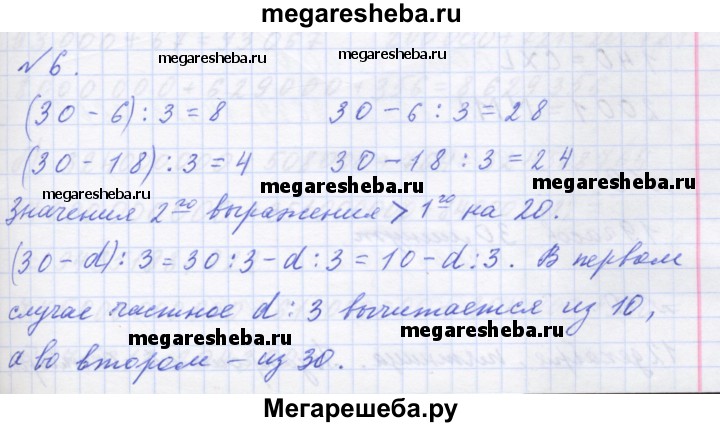 megaresheba.ru
№ 6. megaresheba.ru megaresheba.ru
(30 - 6) : 3 = 8 30 - 6 : 3 = 28
(30 - 18) : 3 = 4 30 - 18 : 3 = 24
megaresheba.ru megaresheba.ru
Значения 2го выражения > 1го на 20.
(30 - d) : 3 = 30 : 3 - d : 3 = 10 - d : 3. В первом
случае частное d : 3 вычитается из 10,
megaresheba.ru megaresheba.ru
а во втором - из 30.
Мегарешеба.ру